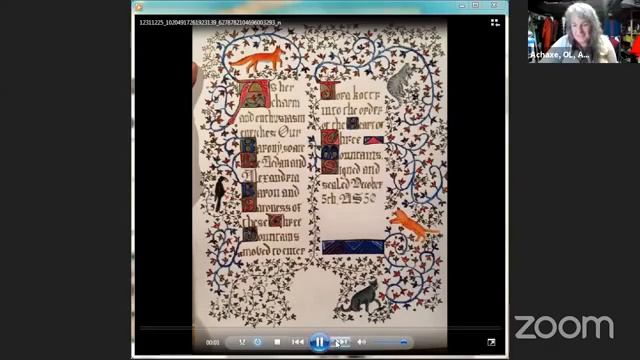 12311225_10204917261923139_6278782104696003293_n
Achaxe, OL, A...
As her
charm
and enthusiasm
enriches Our
Barony, so are
We Aedan and
Alexandria
Baron and
Baroness of
these Three
Mountains
moved to enter
into the order
of the
Three
Mountains.
Signed and
sealed October
5th, AS 50
00:01
zoom